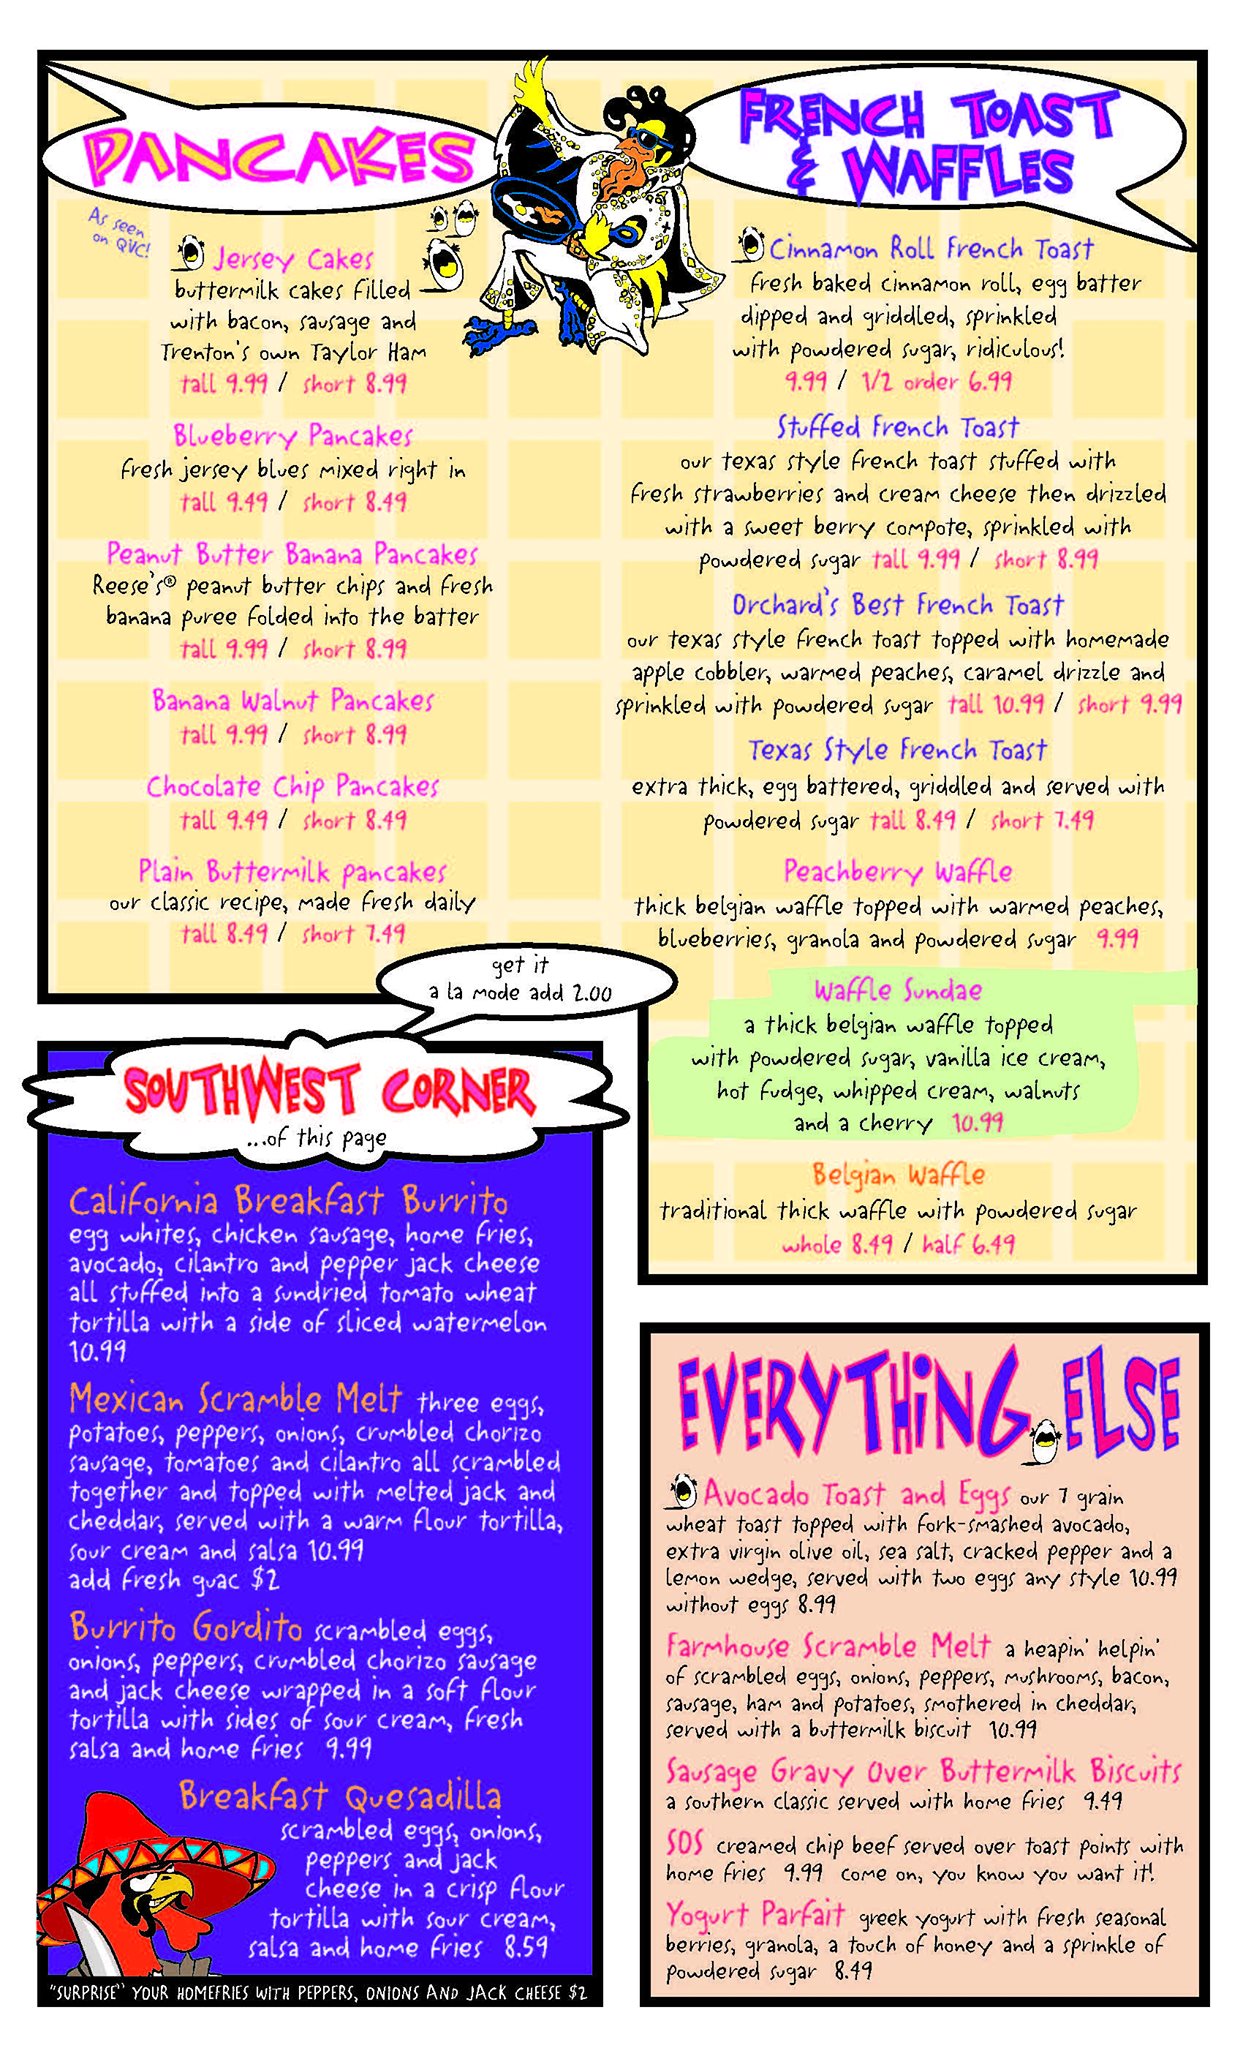 PANCAKES
As seen
on QVC!
Jersey Cakes
buttermilk cakes filled
with bacon, sausage and
Trenton's own Taylor Ham
tall 9.99 / short 8.99
Blueberry Pancakes
fresh jersey blues mixed right in
tall 9.49 / short 8.49
Peanut Butter Banana Pancakes
Reese's® peanut butter chips and fresh
banana puree folded into the batter
tall 9.99 / short 8.99
Banana Walnut Pancakes
tall 9.99 / short 8.99
Chocolate Chip Pancakes
tall 9.49 / short 8.49
Plain Buttermilk pancakes
our classic recipe, made fresh daily
tall 8.49 / short 7.49
get it
a la mode add 2.00
FRENCH TOAST
& WAFFLES
Cinnamon Roll French Toast
fresh baked cinnamon roll, egg batter
dipped and griddled, sprinkled
with powdered sugar, ridiculous!
9.99 / 1/2 order 6.99
Stuffed French Toast
our texas style french toast stuffed with
fresh strawberries and cream cheese then drizzled
with a sweet berry compote, sprinkled with
powdered sugar tall 9.99 / short 8.99
Orchard's Best French Toast
our texas style french toast topped with homemade
apple cobbler, warmed peaches, caramel drizzle and
sprinkled with powdered sugar tall 10.99 / short 9.99
Texas Style French Toast
extra thick, egg battered, griddled and served with
powdered sugar tall 8.49 / short 7.49
Peachberry Waffle
thick belgian waffle topped with warmed peaches,
blueberries, granola and powdered sugar 9.99
Waffle Sundae
a thick belgian waffle topped
with powdered sugar, vanilla ice cream,
hot fudge, whipped cream, walnuts
and a cherry 10.99
Belgian Waffle
traditional thick waffle with powdered sugar
whole 8.49 / half 6.49
SOUTHWEST CORNER
...of this page
California Breakfast Burrito
egg whites, chicken sausage, home fries,
avocado, cilantro and pepper jack cheese
all stuffed into a sundried tomato wheat
tortilla with a side of sliced watermelon
10.99
Mexican Scramble Melt three eggs,
potatoes, peppers, onions, crumbled chorizo
sausage, tomatoes and cilantro all scrambled
together and topped with melted jack and
cheddar, served with a warm flour tortilla,
sour cream and salsa 10.99
add fresh guac $2
Burrito Gordito scrambled eggs,
onions, peppers, crumbled chorizo sausage
and jack cheese wrapped in a soft flour
tortilla with sides of sour cream, fresh
salsa and home fries 9.99
Breakfast Quesadilla
scrambled eggs, onions,
peppers and jack
cheese in a crisp flour
tortilla with sour cream,
salsa and home fries 8.59
"SURPRISE" YOUR HOMEFRIES WITH PEPPERS, ONIONS AND JACK CHEESE $2
EVERYTHING ELSE
Avocado Toast and Eggs our 7 grain
wheat toast topped with fork-smashed avocado,
extra virgin olive oil, sea salt, cracked pepper and a
lemon wedge, served with two eggs any style 10.99
without eggs 8.99
Farmhouse Scramble Melt a heapin' helpin'
of scrambled eggs, onions, peppers, mushrooms, bacon,
sausage, ham and potatoes, smothered in cheddar,
served with a buttermilk biscuit 10.99
Sausage Gravy Over Buttermilk Biscuits
a southern classic served with home fries 9.49
SOS creamed chip beef served over toast points with
home fries 9.99 come on, you know you want it!
Yogurt Parfait greek yogurt with fresh seasonal
berries, granola, a touch of honey and a sprinkle of
powdered sugar 8.49